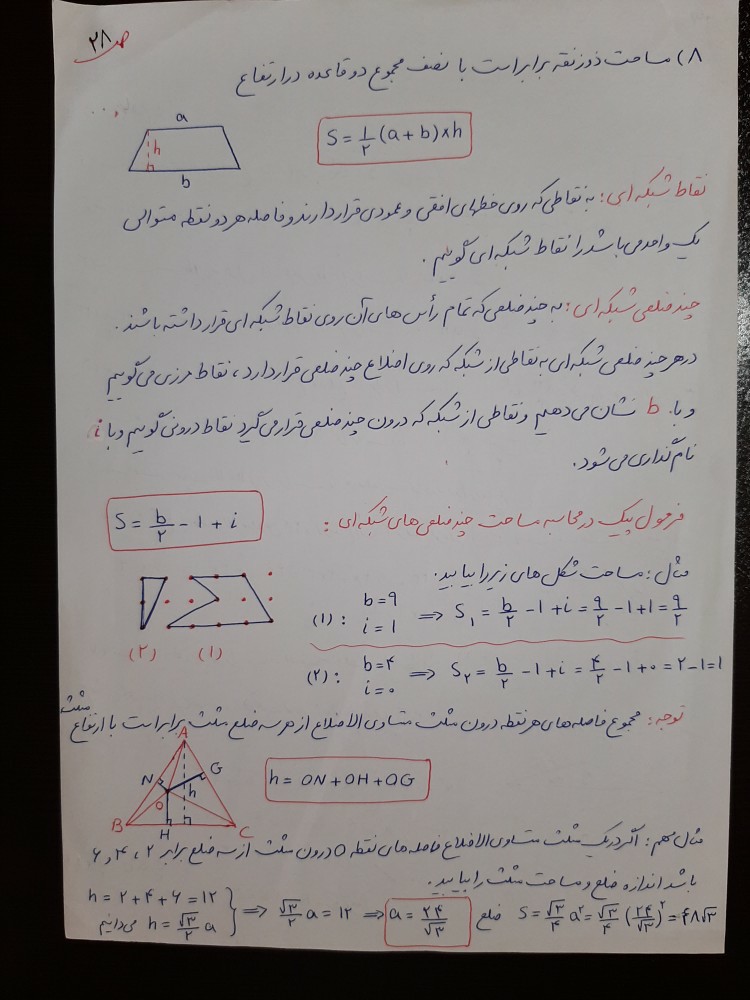 ص ۲۸
۸) مساحت ذوزنقه برابر است با نصف مجموع دو قاعده در ارتفاع
a
h
b
S = ۱/۲ (a + b) × h
نقاط شبکه ای: به نقاطی که روی خطهای افقی و عمودی قرار دارند و فاصله هر دو نقطه متوالی
یک واحد می باشد را نقاط شبکه ای گوییم.
چند ضلعی شبکه ای: به چند ضلعی که تمام رأس های آن روی نقاط شبکه ای قرار داشته باشند.
در هر چند ضلعی شبکه ای به نقاطی از شبکه که روی اضلاع چند ضلعی قرار دارد، نقاط مرزی می گوییم
و با b نشان می دهیم و نقاطی از شبکه که درون چند ضلعی قرار می گیرد نقاط درونی گوییم و با i
نام گذاری می شود.
فرمول پیک در محاسبه مساحت چند ضلعی های شبکه ای:
S = b/۲ - ۱ + i
مثال: مساحت شکل های زیر را بیابید.
(۱): b = ۹ i = ۱ ⇒ S₁ = b/۲ - ۱ + i = ۹/۲ - ۱ + ۱ = ۹/۲
(۲) (۱)
(۲): b = ۴ i = ۰ ⇒ S₂ = b/۲ - ۱ + i = ۴/۲ - ۱ + ۰ = ۲ - ۱ = ۱
توجه: مجموع فاصله های هر نقطه درون مثلث متساوی الاضلاع از هر سه ضلع مثلث برابر است با ارتفاع مثلث
A
N G
O h
B H C
h = ON + OH + OG
مثال مهم: اگر در یک مثلث متساوی الاضلاع فاصله های نقطه O درون مثلث از سه ضلع برابر ۲، ۴، ۶
باشد اندازه ضلع و مساحت مثلث را بیابید.
h = ۲ + ۴ + ۶ = ۱۲
می دانیم h = √۳/۲ a } ⇒ √۳/۲ a = ۱۲ ⇒ a = ۲۴/√۳ ضلع S = √۳/۴ a² = √۳/۴ (۲۴/√۳)² = ۴۸√۳